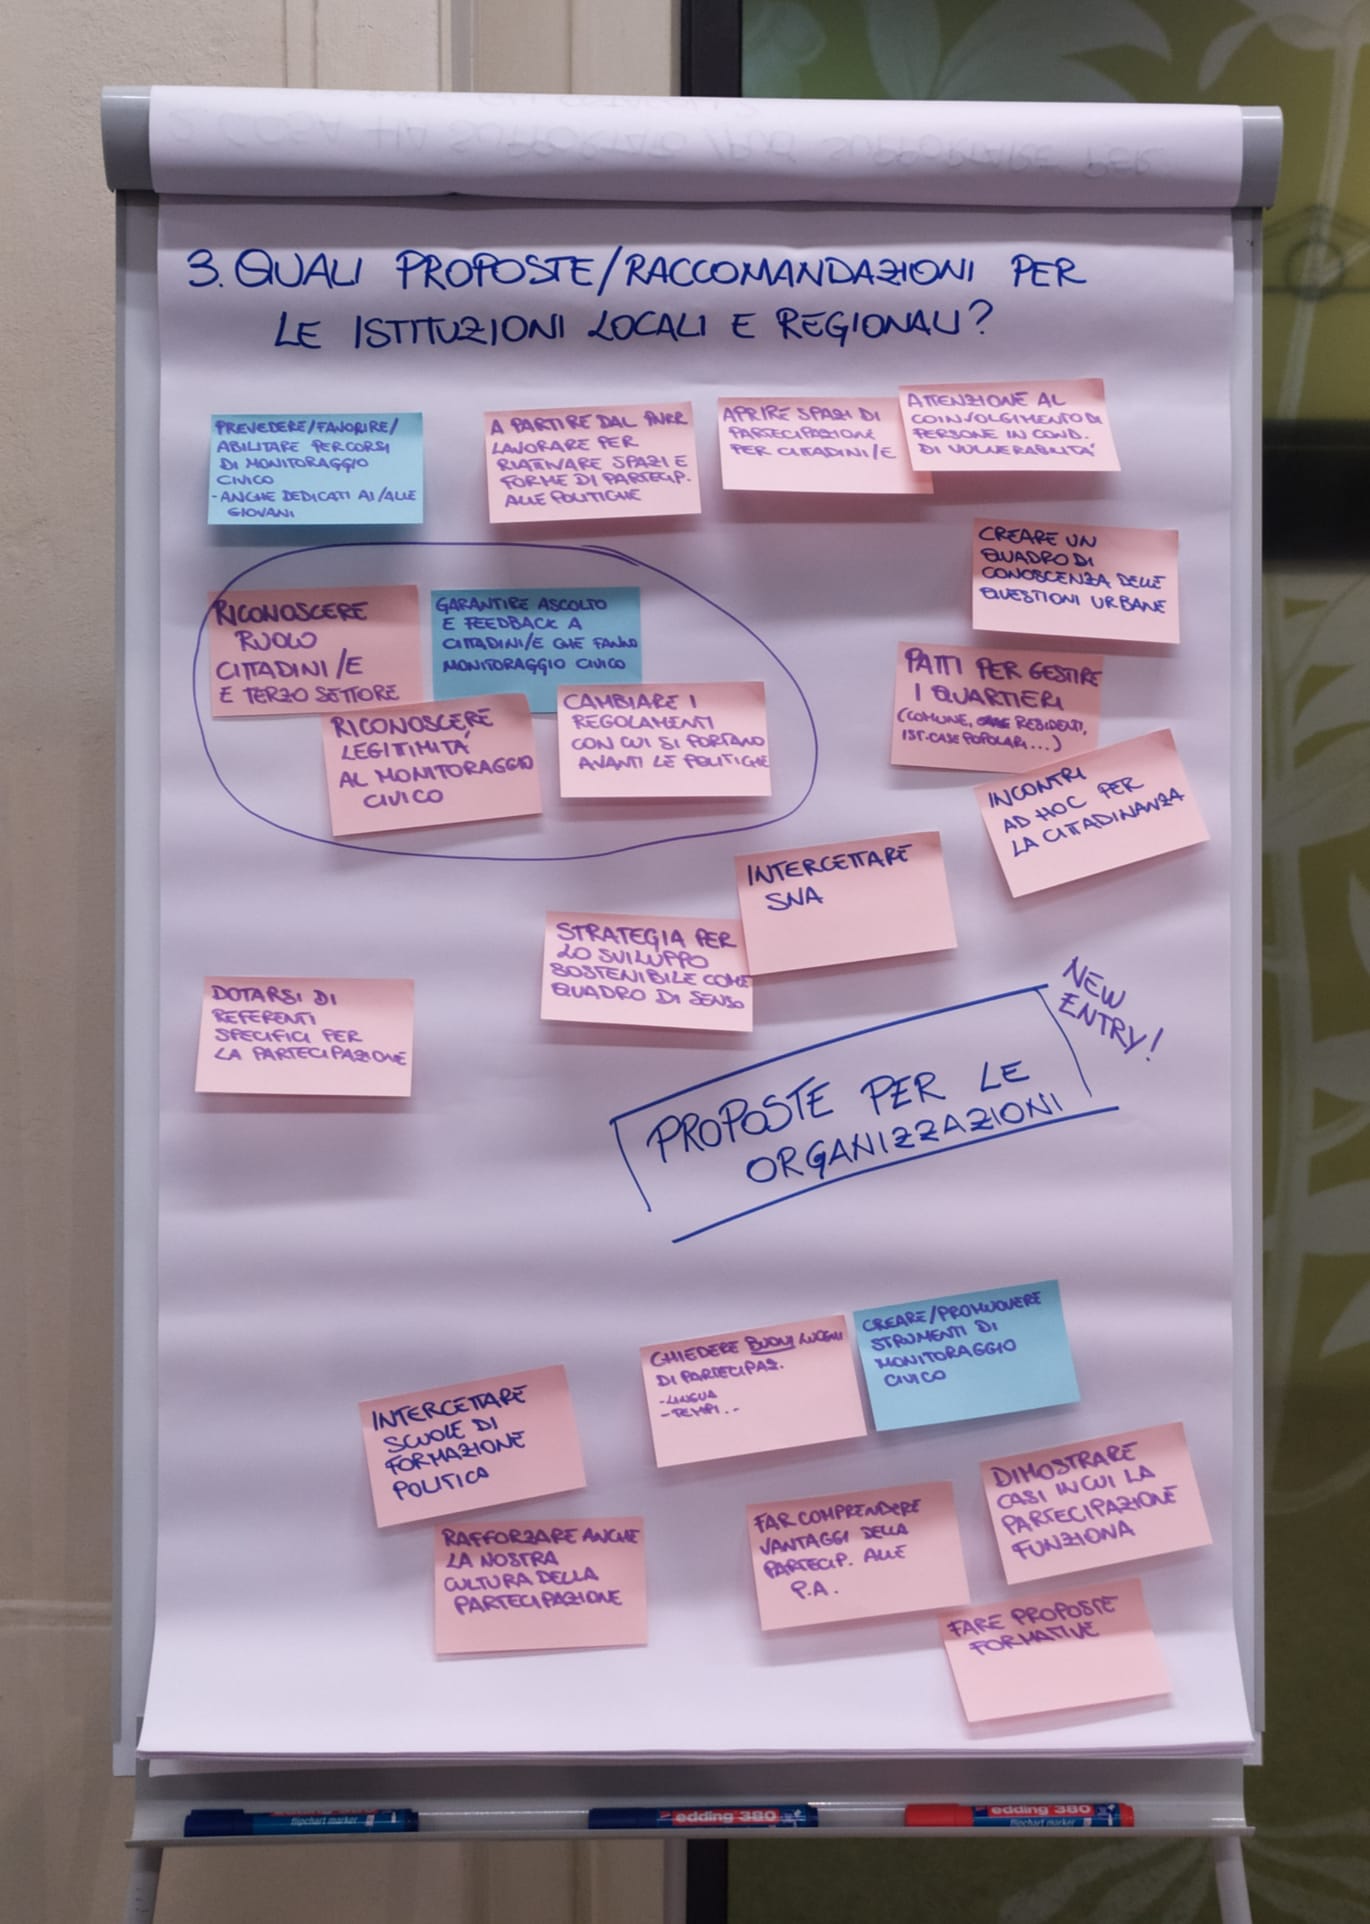 3. QUALI PROPOSTE/RACCOMANDAZIONI PER
LE ISTITUZIONI LOCALI E REGIONALI?
PREVEDERE/FAVORIRE/
ABILITARE PERCORSI
DI MONITORAGGIO
CIVICO
- ANCHE DEDICATI AI/ALLE
GIOVANI
A PARTIRE DAL PNRR
LAVORARE PER
RIATTIVARE SPAZI E
FORME DI PARTECIP.
ALLE POLITICHE
APRIRE SPAZI DI
PARTECIPAZIONE
PER CITTADINI/E
ATTENZIONE AL
COINVOLGIMENTO DI
PERSONE IN COND.
DI VULNERABILITA'
CREARE UN
QUADRO DI
CONOSCENZA DELLE
QUESTIONI URBANE
RICONOSCERE
RUOLO
CITTADINI/E
E TERZO SETTORE
GARANTIRE ASCOLTO
E FEEDBACK A
CITTADINI/E CHE FANNO
MONITORAGGIO CIVICO
RICONOSCERE
LEGITIMITÀ
AL MONITORAGGIO
CIVICO
CAMBIARE I
REGOLAMENTI
CON CUI SI PORTANO
AVANTI LE POLITICHE
PATTI PER GESTIRE
I QUARTIERI
(COMUNE, RESIDENTI,
IST. CASE POPOLARI...)
INCONTRI
AD HOC PER
LA CITTADINANZA
INTERCETTARE
SNA
STRATEGIA PER
LO SVILUPPO
SOSTENIBILE COME
QUADRO DI SENSO
DOTARSI DI
REFERENTI
SPECIFICI PER
LA PARTECIPAZIONE
NEW
ENTRY!
PROPOSTE PER LE
ORGANIZZAZIONI
CHIEDERE BUONI LUOGHI
DI PARTECIPAZ.
- LINGUA
- TEMPI..
CREARE/PROMUOVERE
STRUMENTI DI
MONITORAGGIO
CIVICO
INTERCETTARE
SCUOLE DI
FORMAZIONE
POLITICA
RAFFORZARE ANCHE
LA NOSTRA
CULTURA DELLA
PARTECIPAZIONE
FAR COMPRENDERE
VANTAGGI DELLA
PARTECIP. ALLE
P.A.
DIMOSTRARE
CASI IN CUI LA
PARTECIPAZIONE
FUNZIONA
FARE PROPOSTE
FORMATIVE
flipchart marker
edding 380
edding 380
flipchart marker